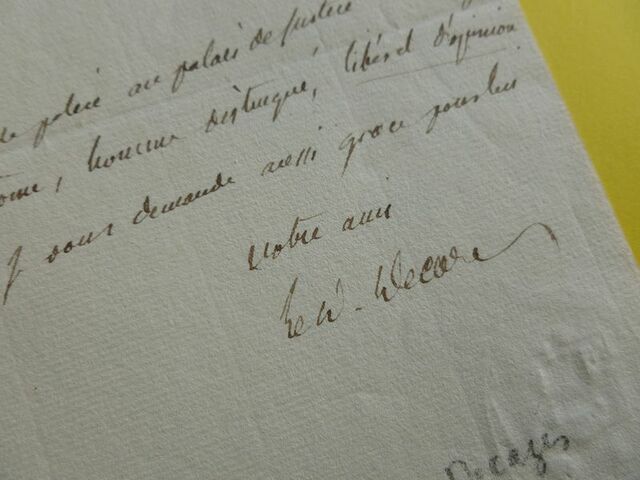 de police au palais de justice
homme distingué, libéral d'opinion
je vous demande aussi grace pour lui
Votre ami
Decazes